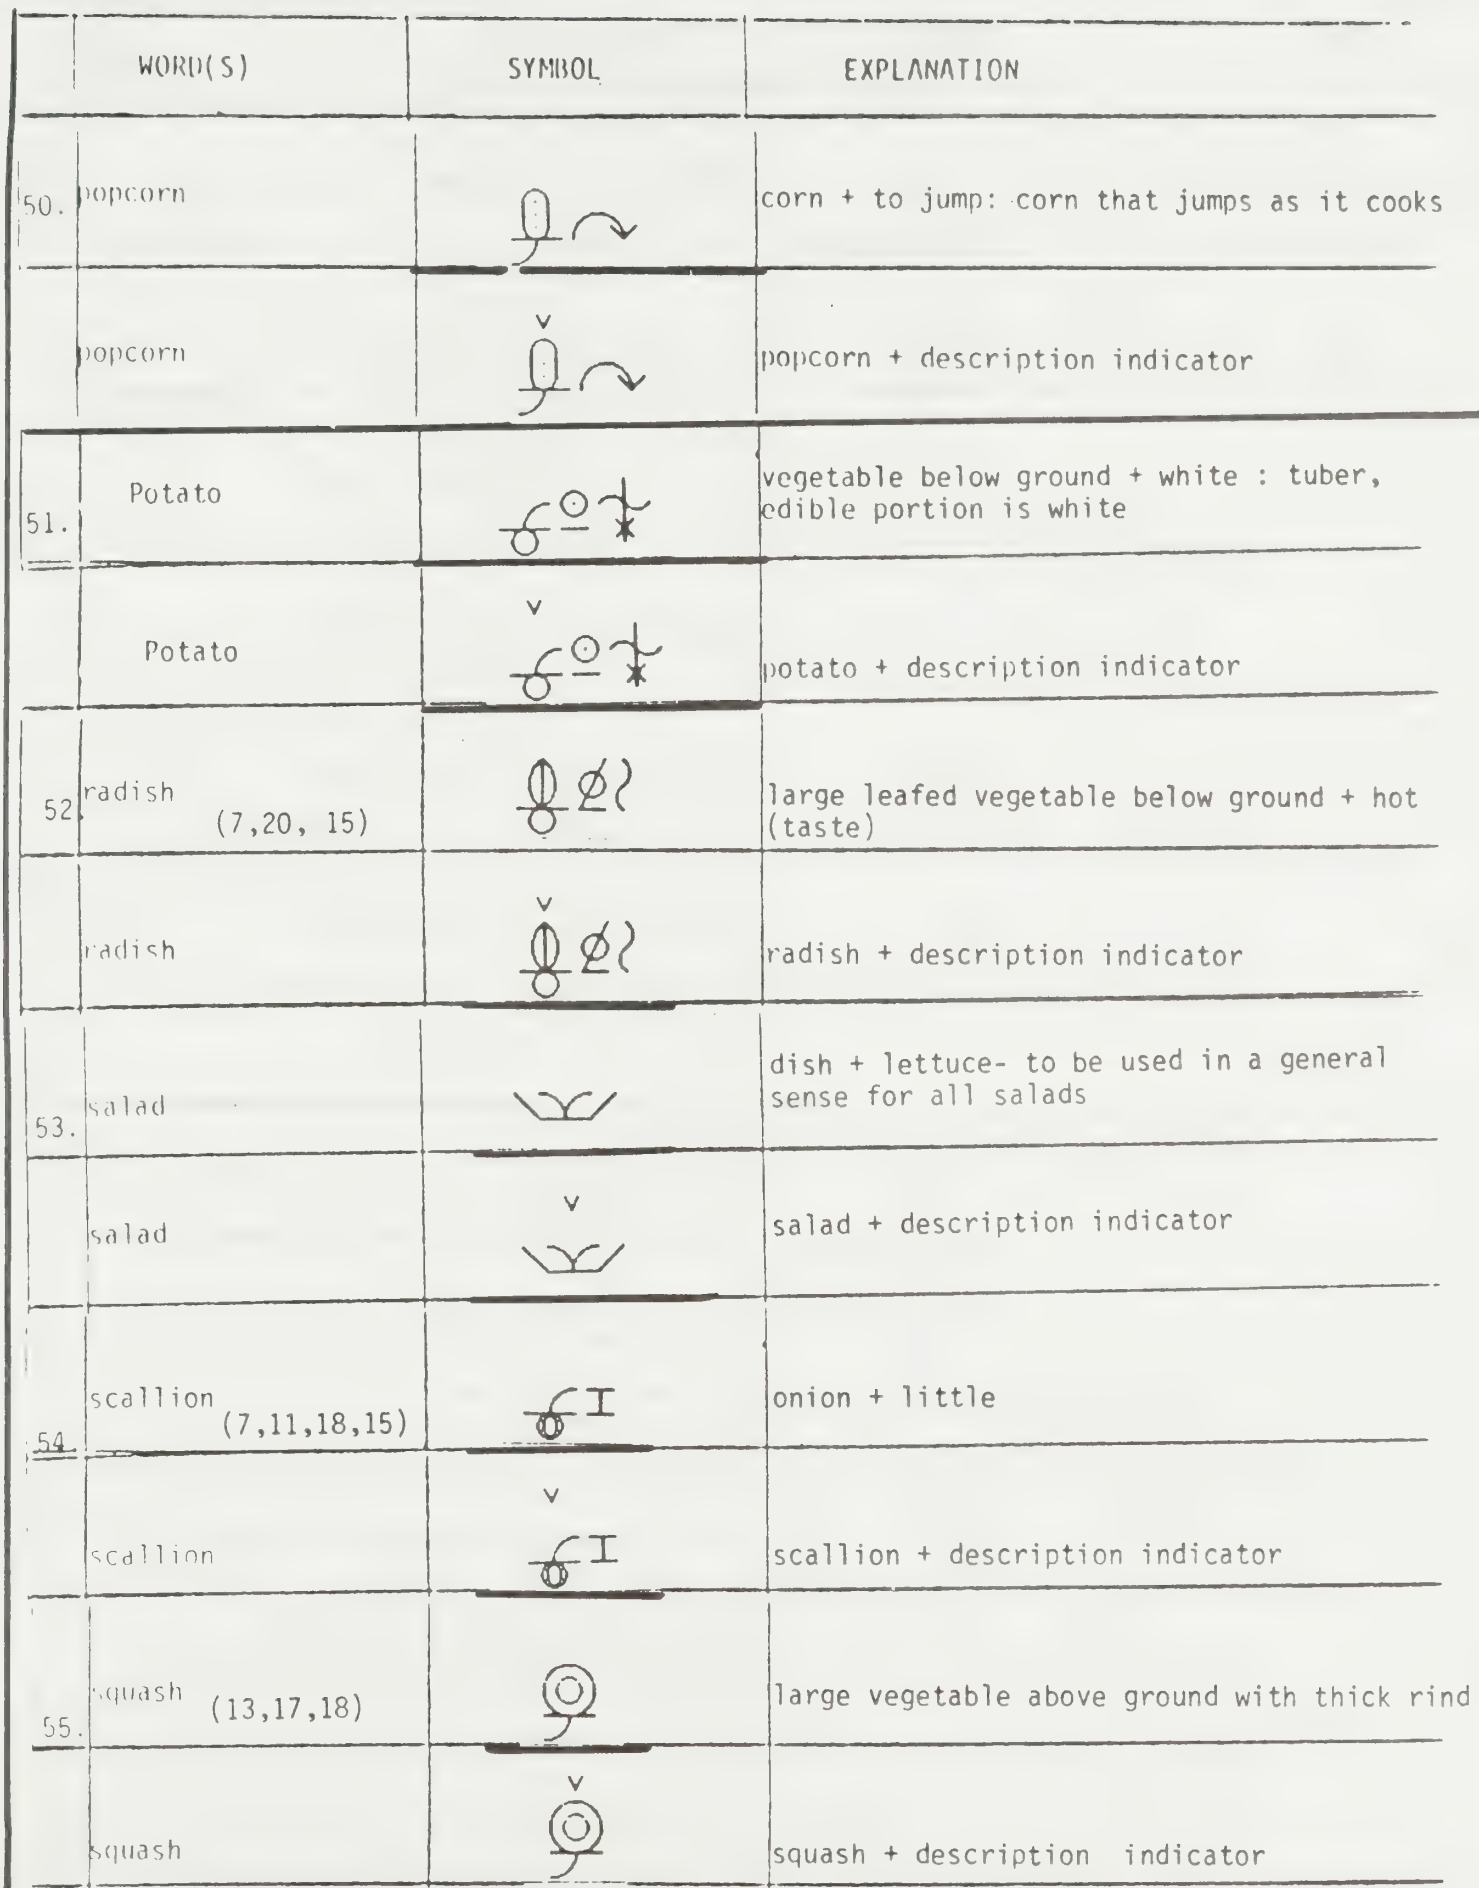 WORD(S) SYMBOL EXPLANATION
50. popcorn corn + to jump: corn that jumps as it cooks
popcorn popcorn + description indicator
vegetable below ground + white : tuber,
51. Potato edible portion is white
Potato potato + description indicator
52 radish large leafed vegetable below ground + hot
(7,20, 15) (taste)
radish radish + description indicator
dish + lettuce- to be used in a general
53. salad sense for all salads
salad salad + description indicator
scallion onion + little
54 (7,11,18,15)
scallion scallion + description indicator
55. squash (13,17,18) large vegetable above ground with thick rind
squash squash + description indicator